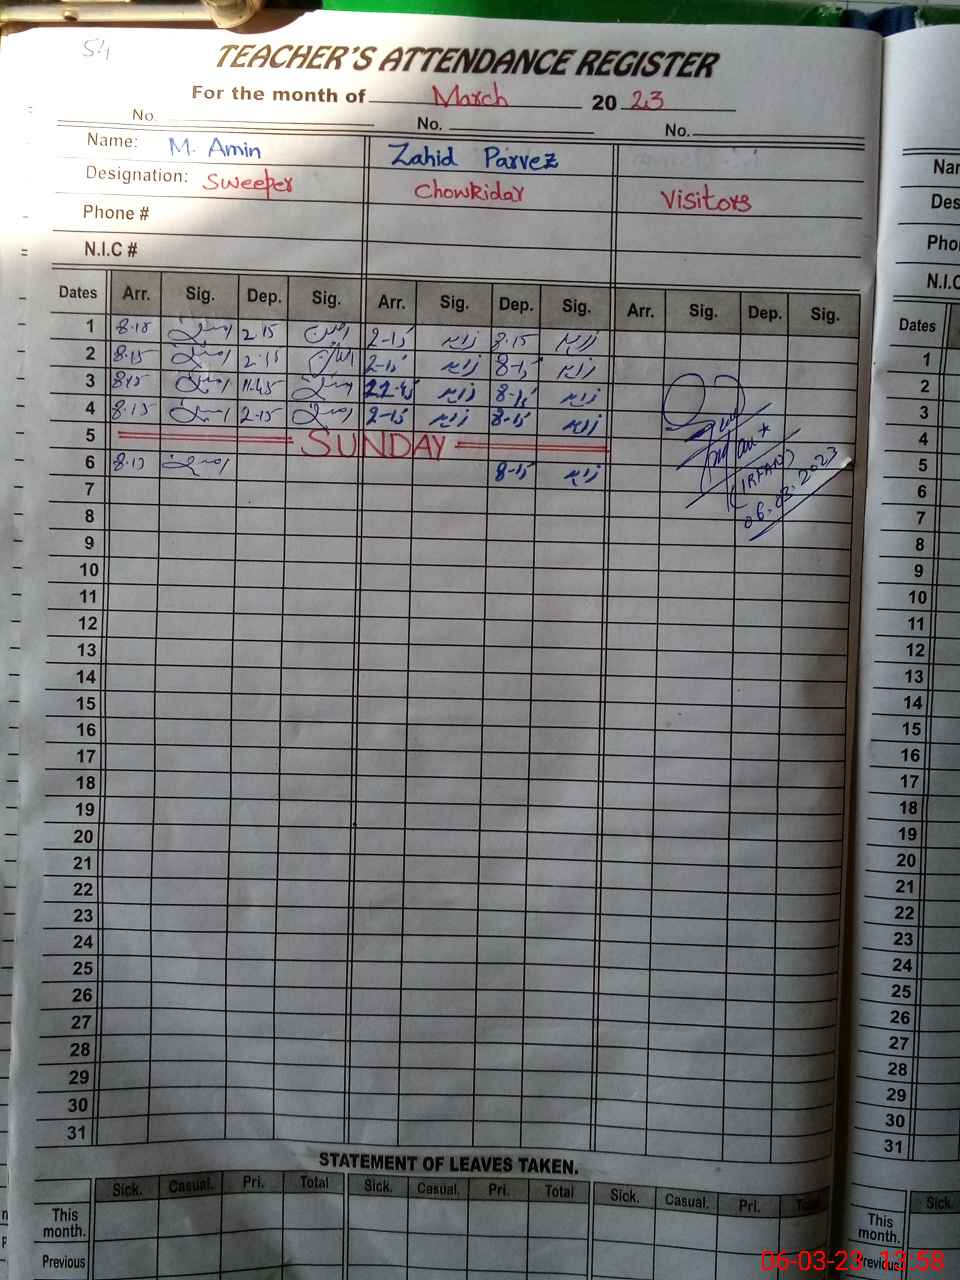 54
TEACHER'S ATTENDANCE REGISTER
For the month of March 2023
No. No. No.
Name: M. Amin Zahid Parvez
Designation: Sweeper Chowkidar Visitors
Phone #
N.I.C #
Dates Arr. Sig. Dep. Sig. Arr. Sig. Dep. Sig. Arr. Sig. Dep. Sig.
1 8.15 2.15 2-15 8.15
2 8.15 2.15 2-15 8-15
3 8.15 11.45 8-15
4 8.15 2-15 2-15 8-15
5 SUNDAY
6 8.15 8-15
(IRFAN)
06.03.2023
7
8
9
10
11
12
13
14
15
16
17
18
19
20
21
22
23
24
25
26
27
28
29
30
31
STATEMENT OF LEAVES TAKEN.
Sick. Casual. Pri. Total Sick. Casual. Pri. Total Sick. Casual. Pri.
This month.
Previous
Dates
1
2
3
4
5
6
7
8
9
10
11
12
13
14
15
16
17
18
19
20
21
22
23
24
25
26
27
28
29
30
31
Sick.
This month.
Previous
06-03-23 13:58